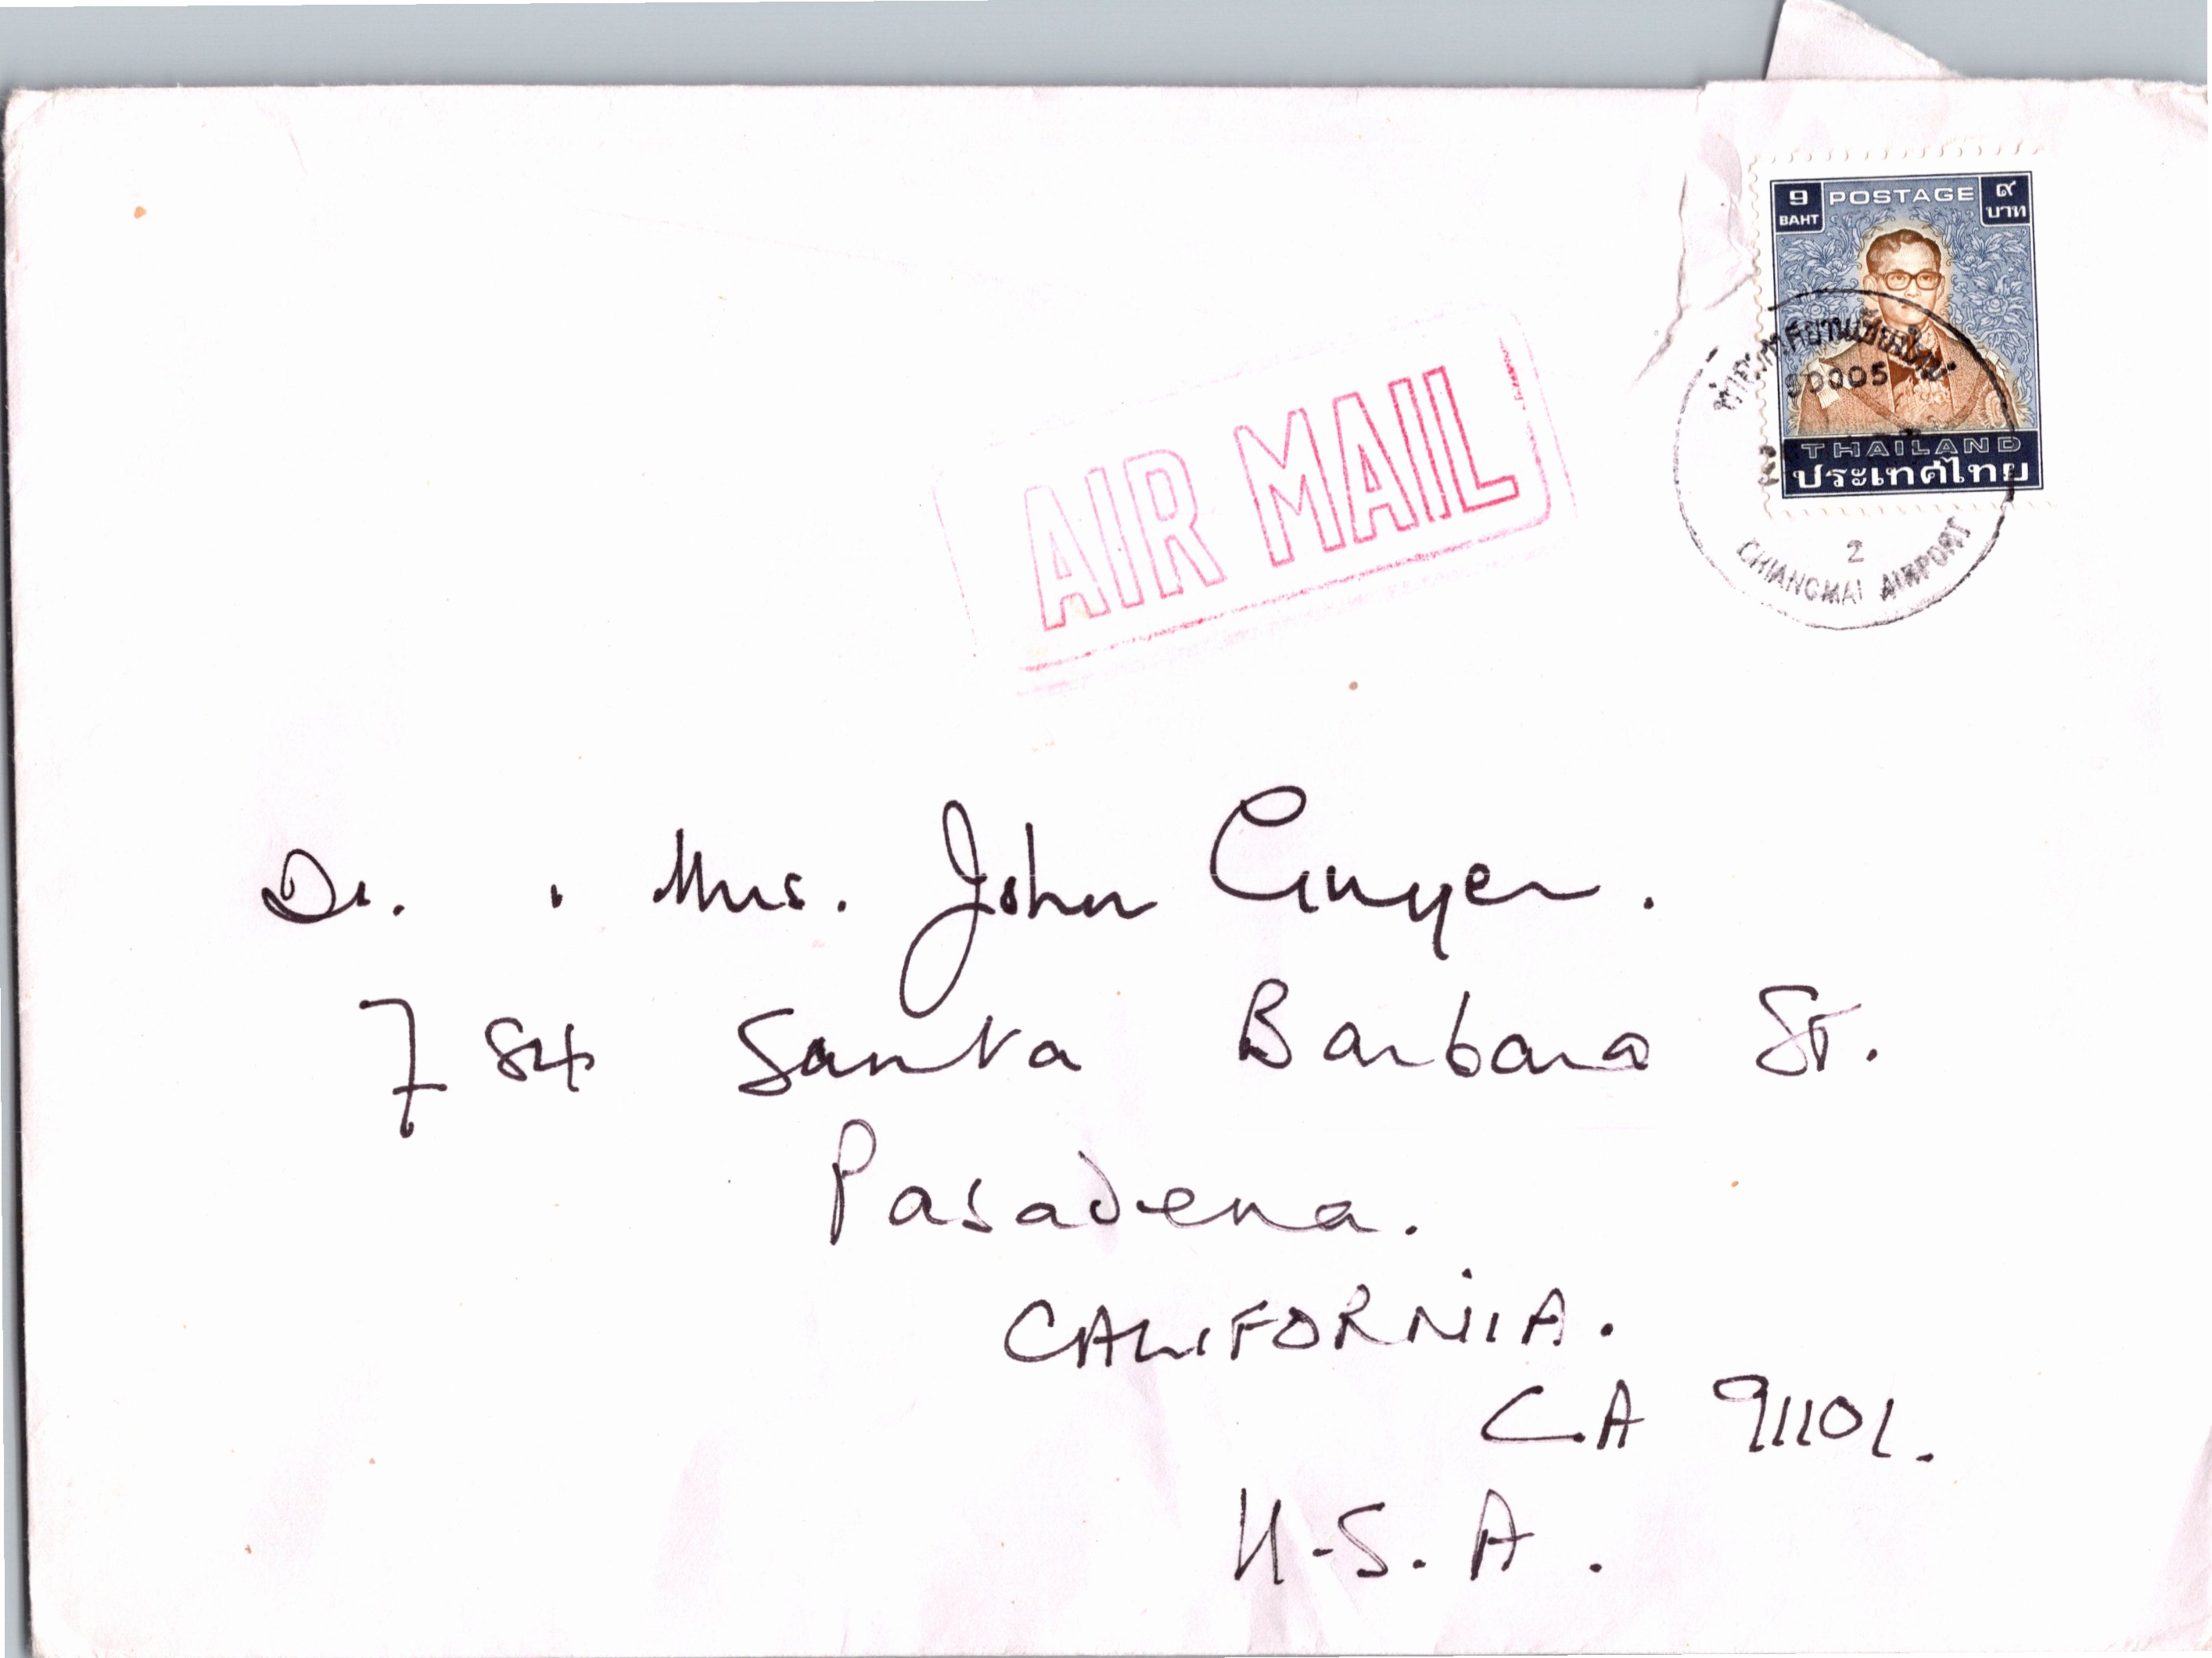 9 POSTAGE ๙
BAHT บาท
THAILAND
ประเทศไทย
ท่าอากาศยานเชียงใหม่
50005
2
CHIANGMAI AIRPORT
AIR MAIL
Dr. . Mrs. John Guyer.
784 Santa Barbara St.
Pasadena.
CALIFORNIA.
CA 91101.
U.S.A.